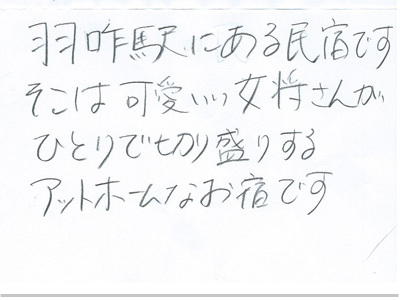 羽咋駅にある民宿です
そこは可愛いい女将さんが
ひとりで切り盛りする
アットホームなお宿です